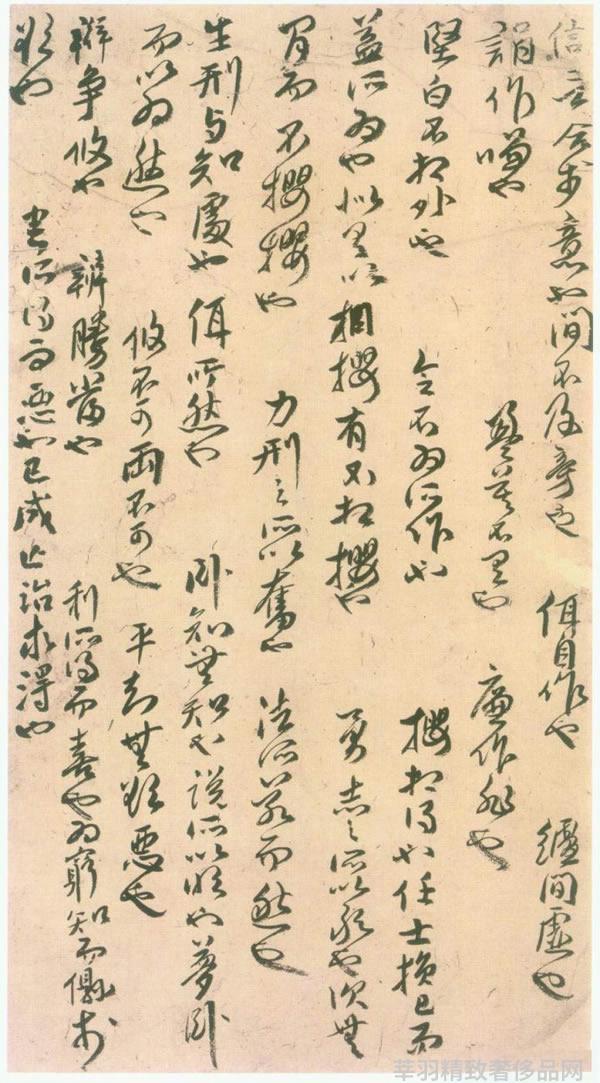 信言合於意也間不及旁也佴自作也纑間虛也
詽作嗛也盈莫不有也廉作非也
堅白不相外也令不為所作也攖相得也任士損己而
益所為也似是以相攖有不相攖也勇志之所以敢也次無
間而不攖攖也力刑之所以奮也法所若而然也
生刑与知處也佴所然也臥知無知也說所以明也夢臥
而以為然也攸不可兩不可也平知無欲惡也
辯爭攸也辯勝當也利所得而喜也為窮知而儇於
欲也害所得而惡也已成亡治求得也
莘羽精致奢侈品网